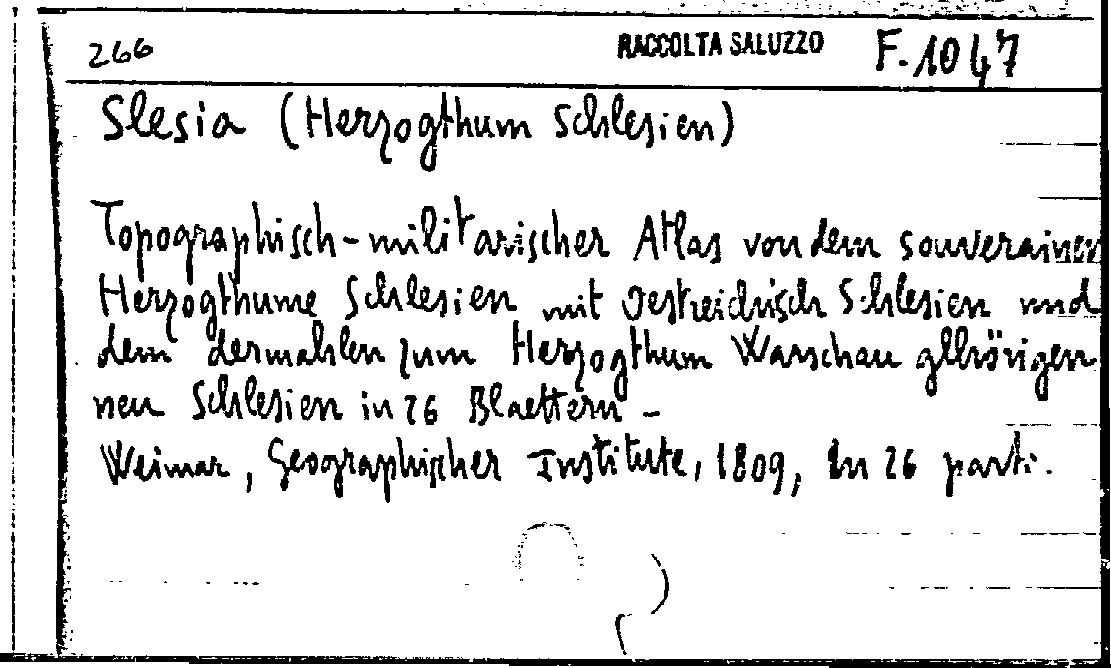 266 RACCOLTA SALUZZO F. 1047
Slesia (Herzogthum Schlesien)
Topographisch-militarischer Atlas von dem souverainen
Herzogthume Schlesien mit Oestreichisch Schlesien und
dem dermahlen zum Herzogthum Warschau gehörigen
neu Schlesien in 26 Blaettern -
Weimar, Geographischer Institute, 1809, In 26 parti.